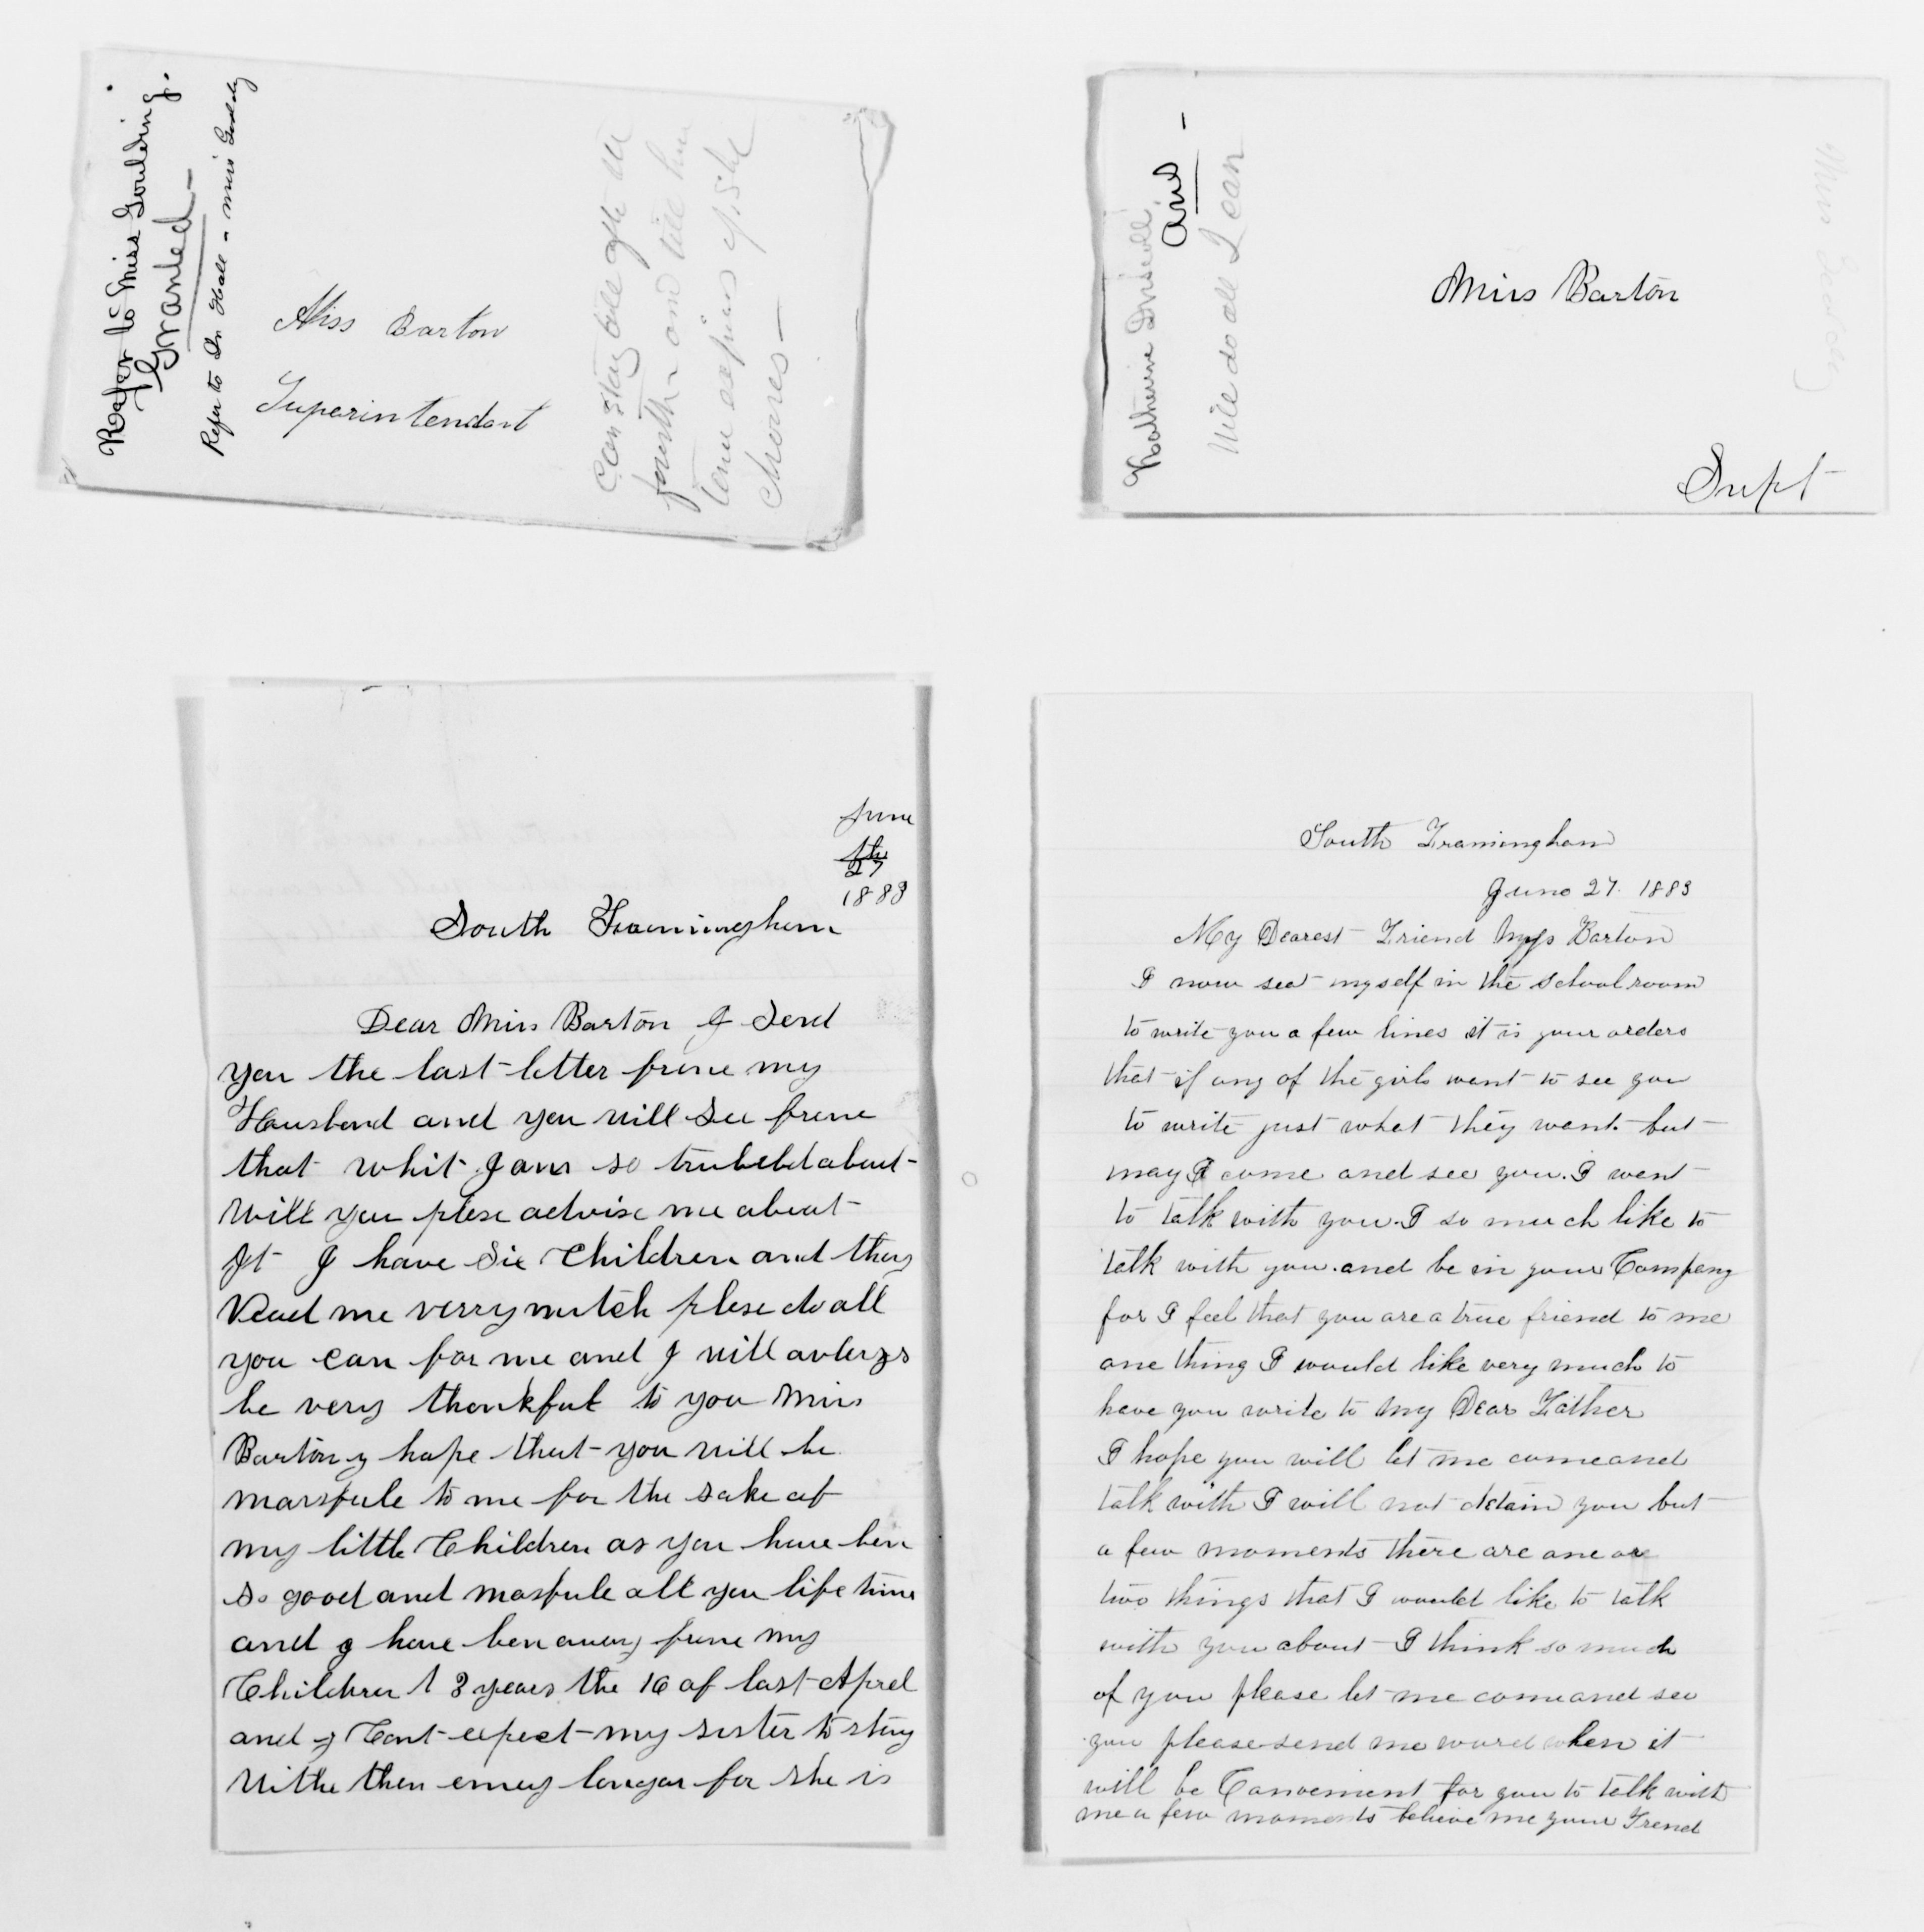 Refer to Miss Goulding.
Granted —
Refer to Dr Hall - miss
Miss Barton
Superintendant
Can stay
fourth and till her
term expires if she
chooses —
Katherine Driscoll
Ans —
Will do all I can
Miss Barton
Supt
June
27
1883
South Framinghum
Dear Miss Barton I Send
you the last letter frume my
Hausbend and you will See frume
that whit I am so trubeld about
Will you plese advise me abeut
It I have Six Children and thay
Nead me verry mutch plese do all
you can for me and I will avlerys
be very thenkful to you Miss
Barton I hope thut you will be
marsfule to me for the sake af
my little Children as you have ben
so good and masfule all you life time
and I have ben away frume my
Children 1 3 years the 16 of last Aprel
and I Cant expect my sister to stay
Withe then eney longar for she is
South Framingham
June 27. 1883
My Dearest Friend Miss Barton
I now seat myself in the schoolroom
to write you a few lines it is your orders
that if any of the girls want to see you
to write just what they want. but
may I come and see you. I want
to talk with you. I so much like to
talk with you. and be in your Company
for I feel that you are a true friend to me
one thing I would like very much to
have you write to my Dear Father
I hope you will let me come and
talk with I will not detain you but
a few moments there are one or
two things that I would like to talk
with you about I think so much
of you please let me come and see
you please send me word when it
will be Convenient for you to talk with
me a few moments believe me your Frend